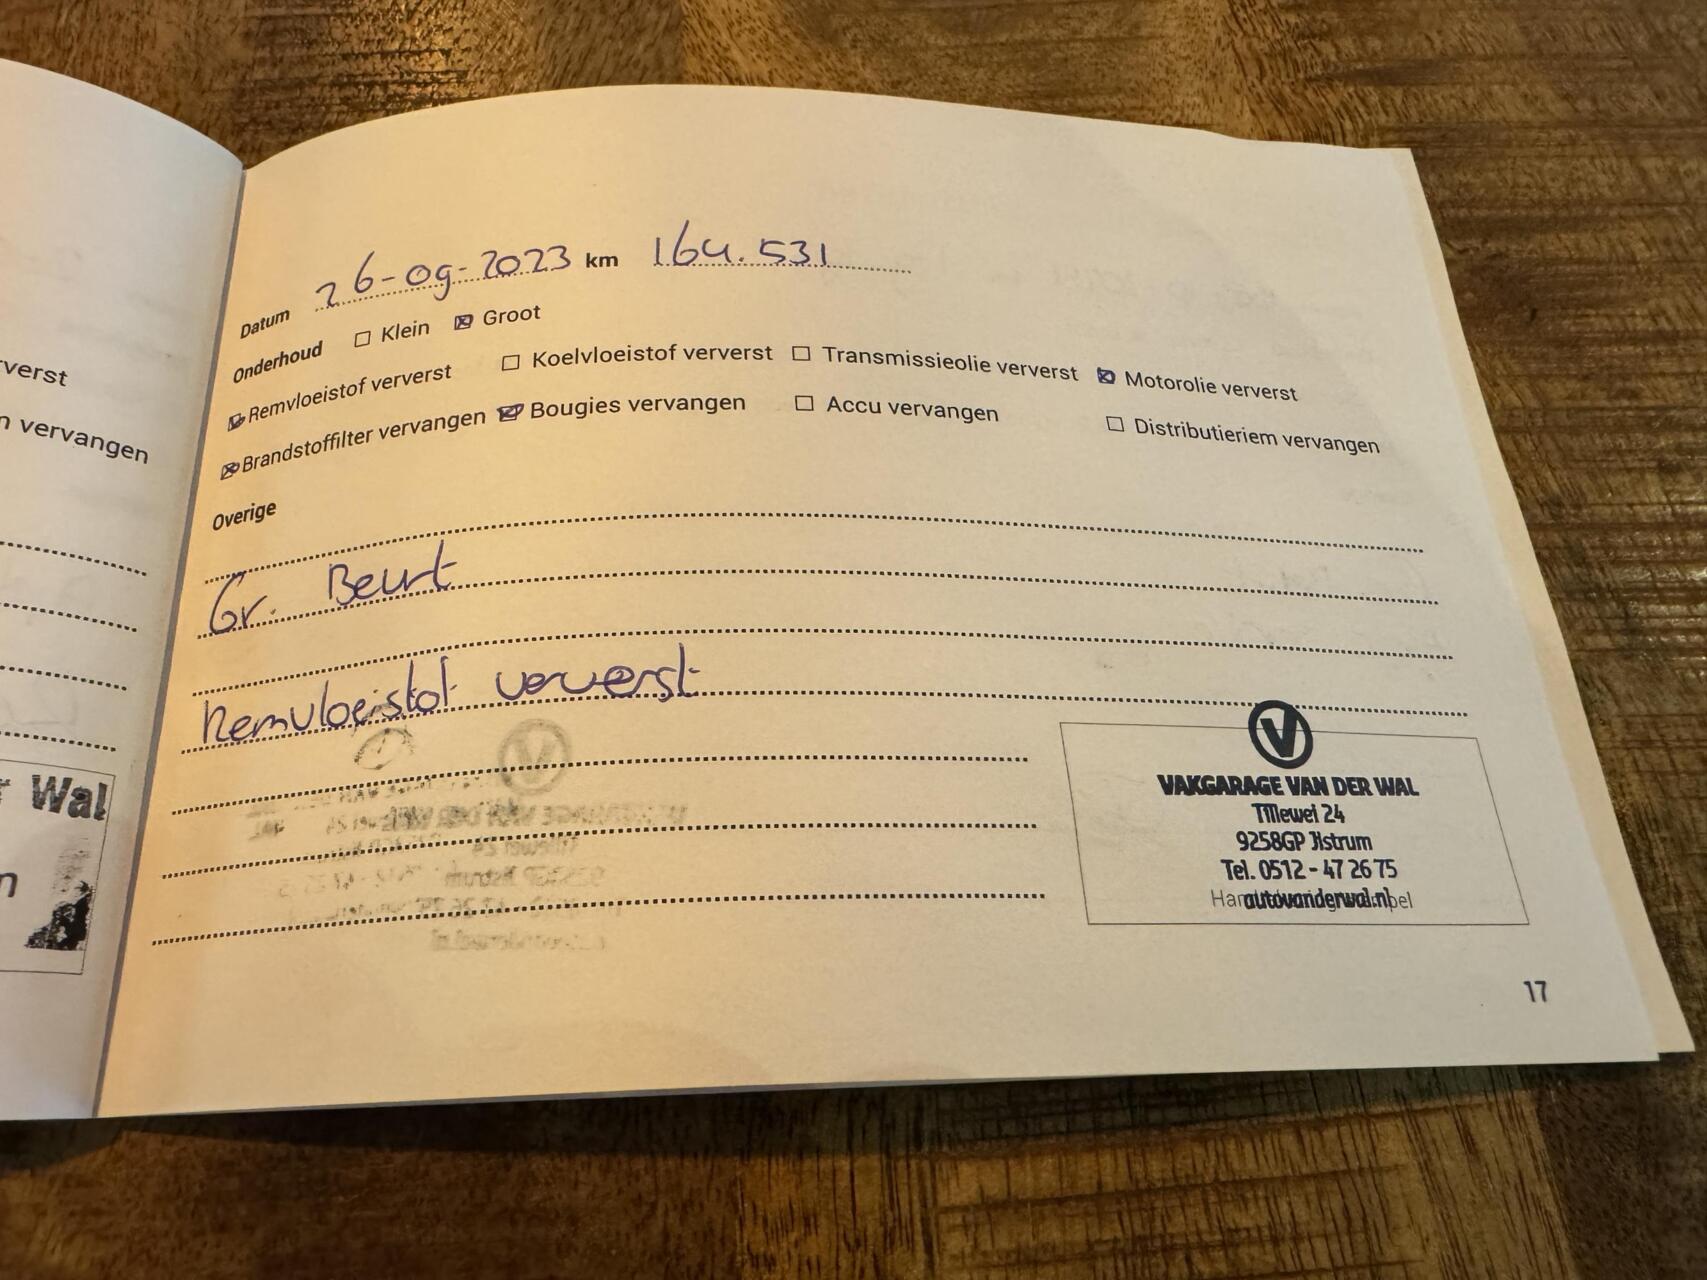 verst
vervangen
Wal
Datum 26-09-2023 km 164.531
Onderhoud ☐ Klein ☒ Groot
☒ Remvloeistof ververst ☐ Koelvloeistof ververst ☐ Transmissieolie ververst ☒ Motorolie ververst
☒ Brandstoffilter vervangen ☒ Bougies vervangen ☐ Accu vervangen ☐ Distributieriem vervangen
Overige
Gr. Beurt
Remvloeistof ververst
VAKGARAGE VAN DER WAL
Tillewei 24
9258GP Jistrum
Tel. 0512 - 47 26 75
autovanderwal.nl
17